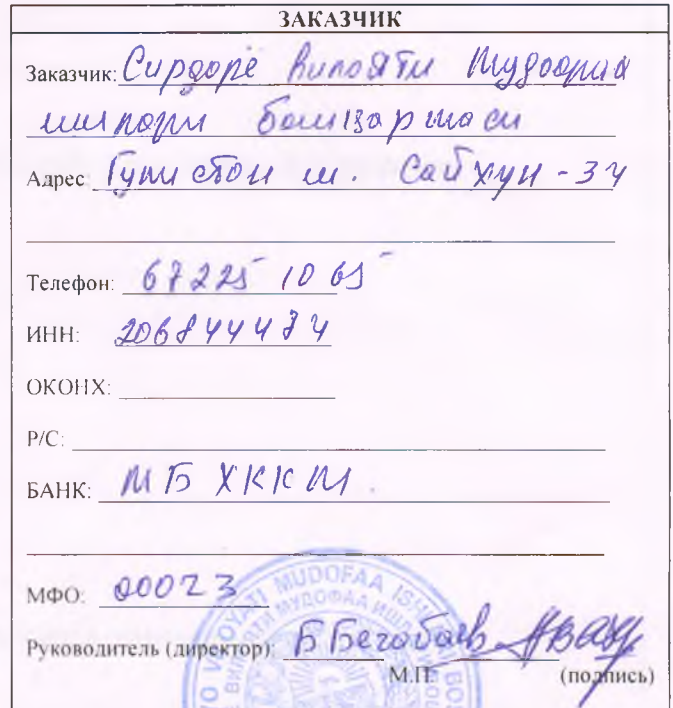 ЗАКАЗЧИК
Заказчик: Сирдарё вилояти Мудофаа
ишлари бошқармаси
Адрес: Гулистон ш. Сайхун - 34
Телефон: 67 225 10 65
ИНН:
ОКОНХ:
Р/С:
БАНК: МБ ХККМ.
МФО: 00023
Руководитель (директор): Б Бегабаев
М.П. (подпись)
VILOYATI MUDOFAA
ВИЛОЯТИ МУДОФАА